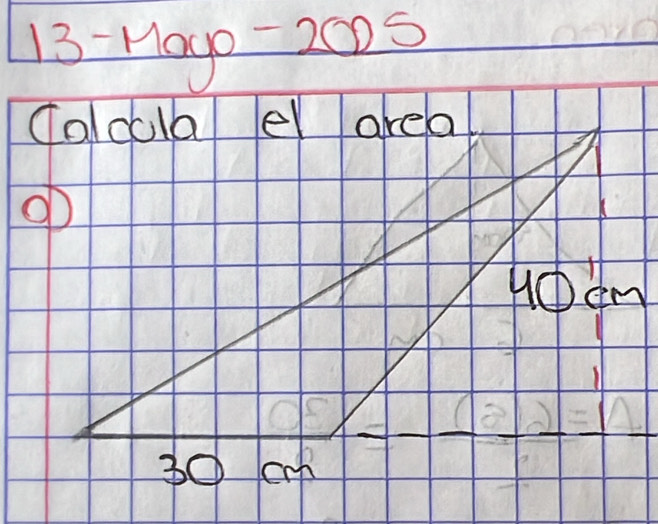 13-Mayo-2025
Calcula el area.
a)
40 cm
30 cm